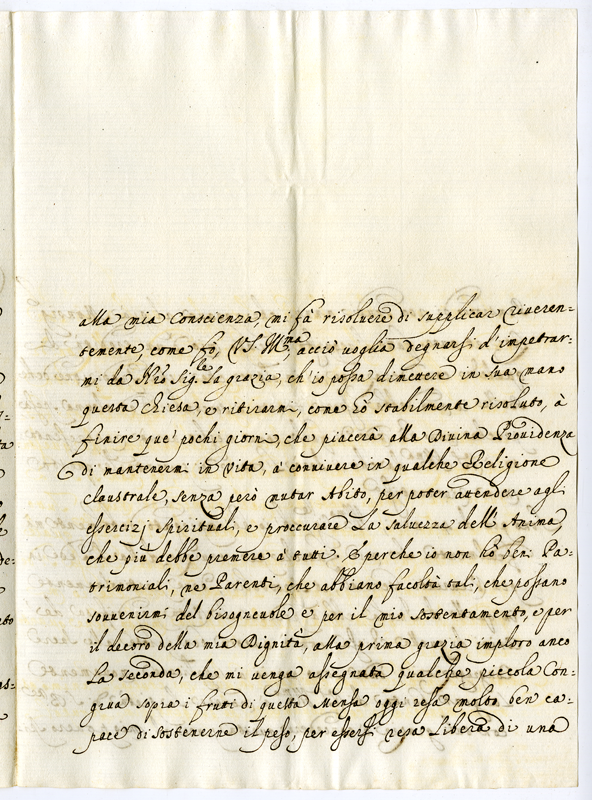 alla mia Conscienza, mi fà risoluere di supplicar riueren-
temente come fò, VS. Ill.ma, acciò uoglia degnarsi d'impetrar-
mi da N'ro Sig.re la grazia, ch'io possa dimettere in sua mano
questa Chiesa, e ritirarmi, come hò stabilmente risoluto, à
finire que' pochi giorni, che piacerà alla Diuina Prouidenza
di mantenermi in vita, à conuiuere in qualche Religione
Claustrale, senza però mutar Abito, per poter attendere agli
essercizj Spirituali, e proccurare la saluezza dell'Anima,
che più debbe premere à tutti. E perche io non hò beni Pa-
trimoniali, ne Parenti, che abbiano facoltà tali, che possano
souuenirmi del bisogneuole e per il mio sostentamento, e per
il decoro della mia Dignità, alla prima grazia imploro anco
la seconda, che mi uenga assegnata qualche piccola Con-
grua sopra i frutti di questa Mensa oggi resa molto ben ca-
pace di sostenerne il peso, per essersi resa libera di una